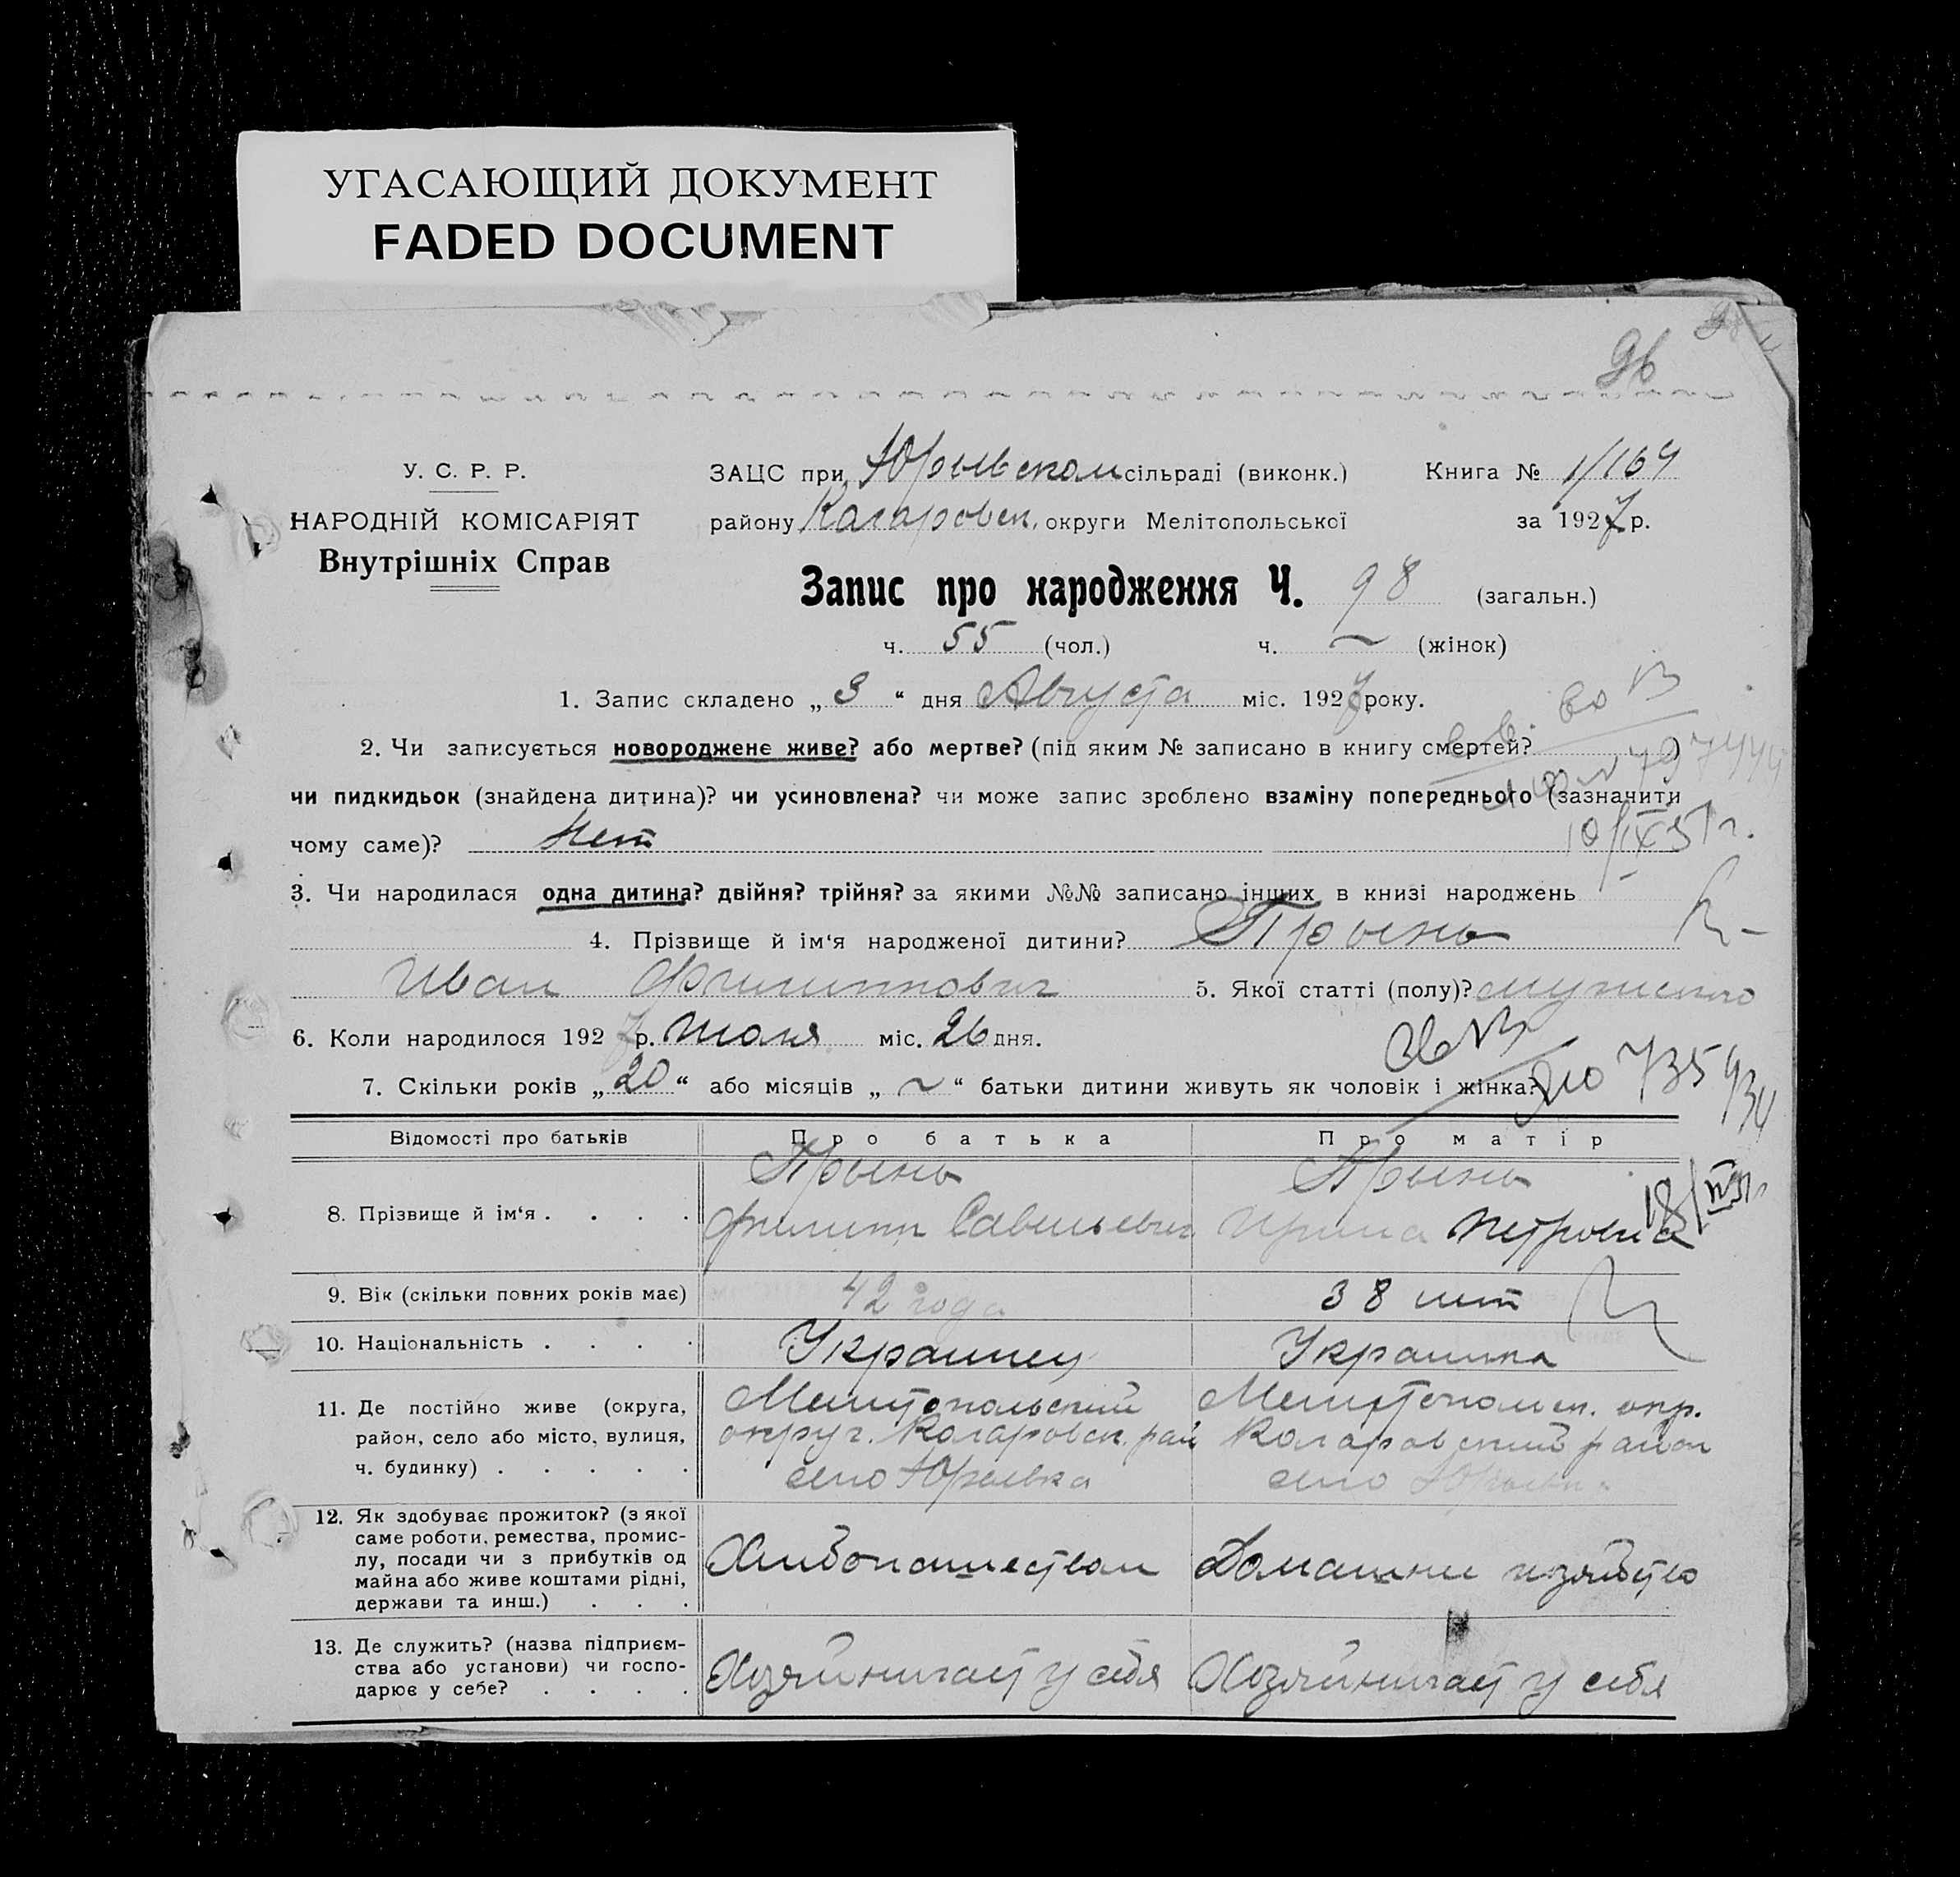 УГАСАЮЩИЙ ДОКУМЕНТ
FADED DOCUMENT
96
У. С. Р. Р.
НАРОДНІЙ КОМІСАРІЯТ
Внутрішніх Справ
ЗАЦС при Юрьевском сільраді (виконк.) Книга № 1/169
району Коларовск. округи Мелітопольської за 1927 р.
Запис про народження Ч. 98 (загальн.)
ч. 55 (чол.) ч. ~ (жінок)
1. Запис складено „ 3 “ дня Августа міс. 1927 року.
2. Чи записується новороджене живе? або мертве? (під яким № записано в книгу смертей? )
чи пидкидьок (знайдена дитина)? чи усиновлена? чи може запис зроблено взаміну попереднього (зазначити
чому саме)? Нет
10/IX 51 г.
3. Чи народилася одна дитина? двійня? трійня? за якими №№ записано інших в книзі народжень
4. Прізвище й ім‘я народженої дитини?
Иван Филиппович 5. Якої статті (полу)? мужского
6. Коли народилося 1927 р. Июля міс. 26 дня.
7. Скільки років „ 20 “ або місяців „ ~ “ батьки дитини живуть як чоловік і жінка?
Відомості про батьків Про батька Про матір
8. Прізвище й ім‘я . . . . Филипп Савельевич Ирина Петровна
9. Вік (скільки повних років має) 42 года 38 лет
10. Національність . . . . Украинец Украинка
11. Де постійно живе (округа, район, село або місто, вулиця, ч. будинку) . . . . .
Мелитопольский Мелитопольск. окр.
округ. Коларовск. рай Коларовский район
село Юрьевка село Юрьевк.
12. Як здобуває прожиток? (з якої саме роботи, ремества, промислу, посади чи з прибутків од майна або живе коштами рідні, держави та инш.) . . .
Хлибопашеством Домашне хозяйство
13. Де служить? (назва підприємства або установи) чи господарює у себе? . . . .
Хозяйничает у себя Хозяйничает у себя